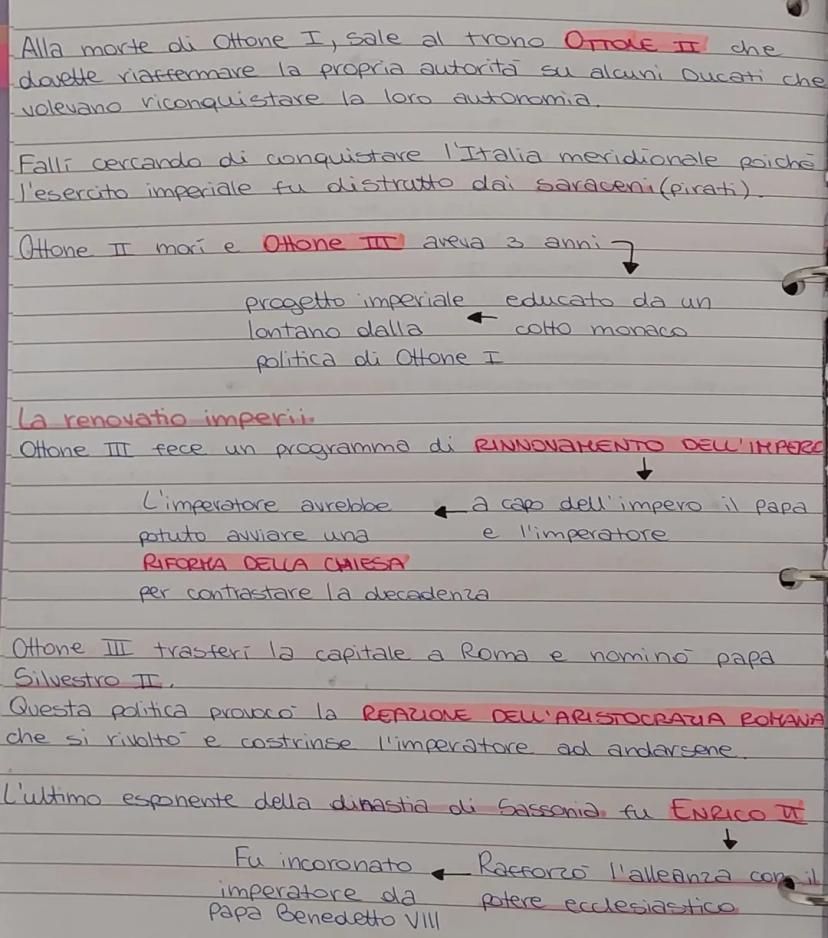 Alla morte di Ottone I, sale al trono OTTONE II che
dovette riaffermare la propria autorità su alcuni Ducati che
volevano riconquistare la loro autonomia.
Fallì cercando di conquistare l'Italia meridionale poichè
l'esercito imperiale fu distrutto dai saraceni (pirati).
Ottone II morì e Ottone III aveva 3 anni
progetto imperiale ← educato da un
lontano dalla colto monaco
politica di Ottone I
La renovatio imperii.
Ottone III fece un programma di RINNOVAMENTO DELL'IMPERO
↓
L'imperatore avrebbe ← a capo dell'impero il papa
potuto avviare una e l'imperatore
RIFORMA DELLA CHIESA
per contrastare la decadenza
Ottone III trasferì la capitale a Roma e nominò papa
Silvestro II.
Questa politica provocò la REAZIONE DELL'ARISTOCRAZIA ROMANA
che si rivoltò e costrinse l'imperatore ad andarsene.
L'ultimo esponente della dinastia di Sassonia fu ENRICO II
↓
Fu incoronato ← Rafforzò l'alleanza con il
imperatore da potere ecclesiastico
Papa Benedetto VIII